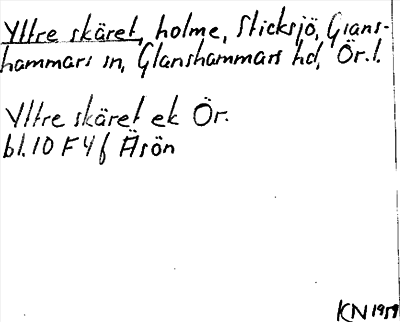 Yttre skäret, holme, Sticksjö, Glans-
hammars sn, Glanshammars hd, Ör.l.
Yttre skäret ek Ör.
bl.10 F 4 f Äsön
KN 1959